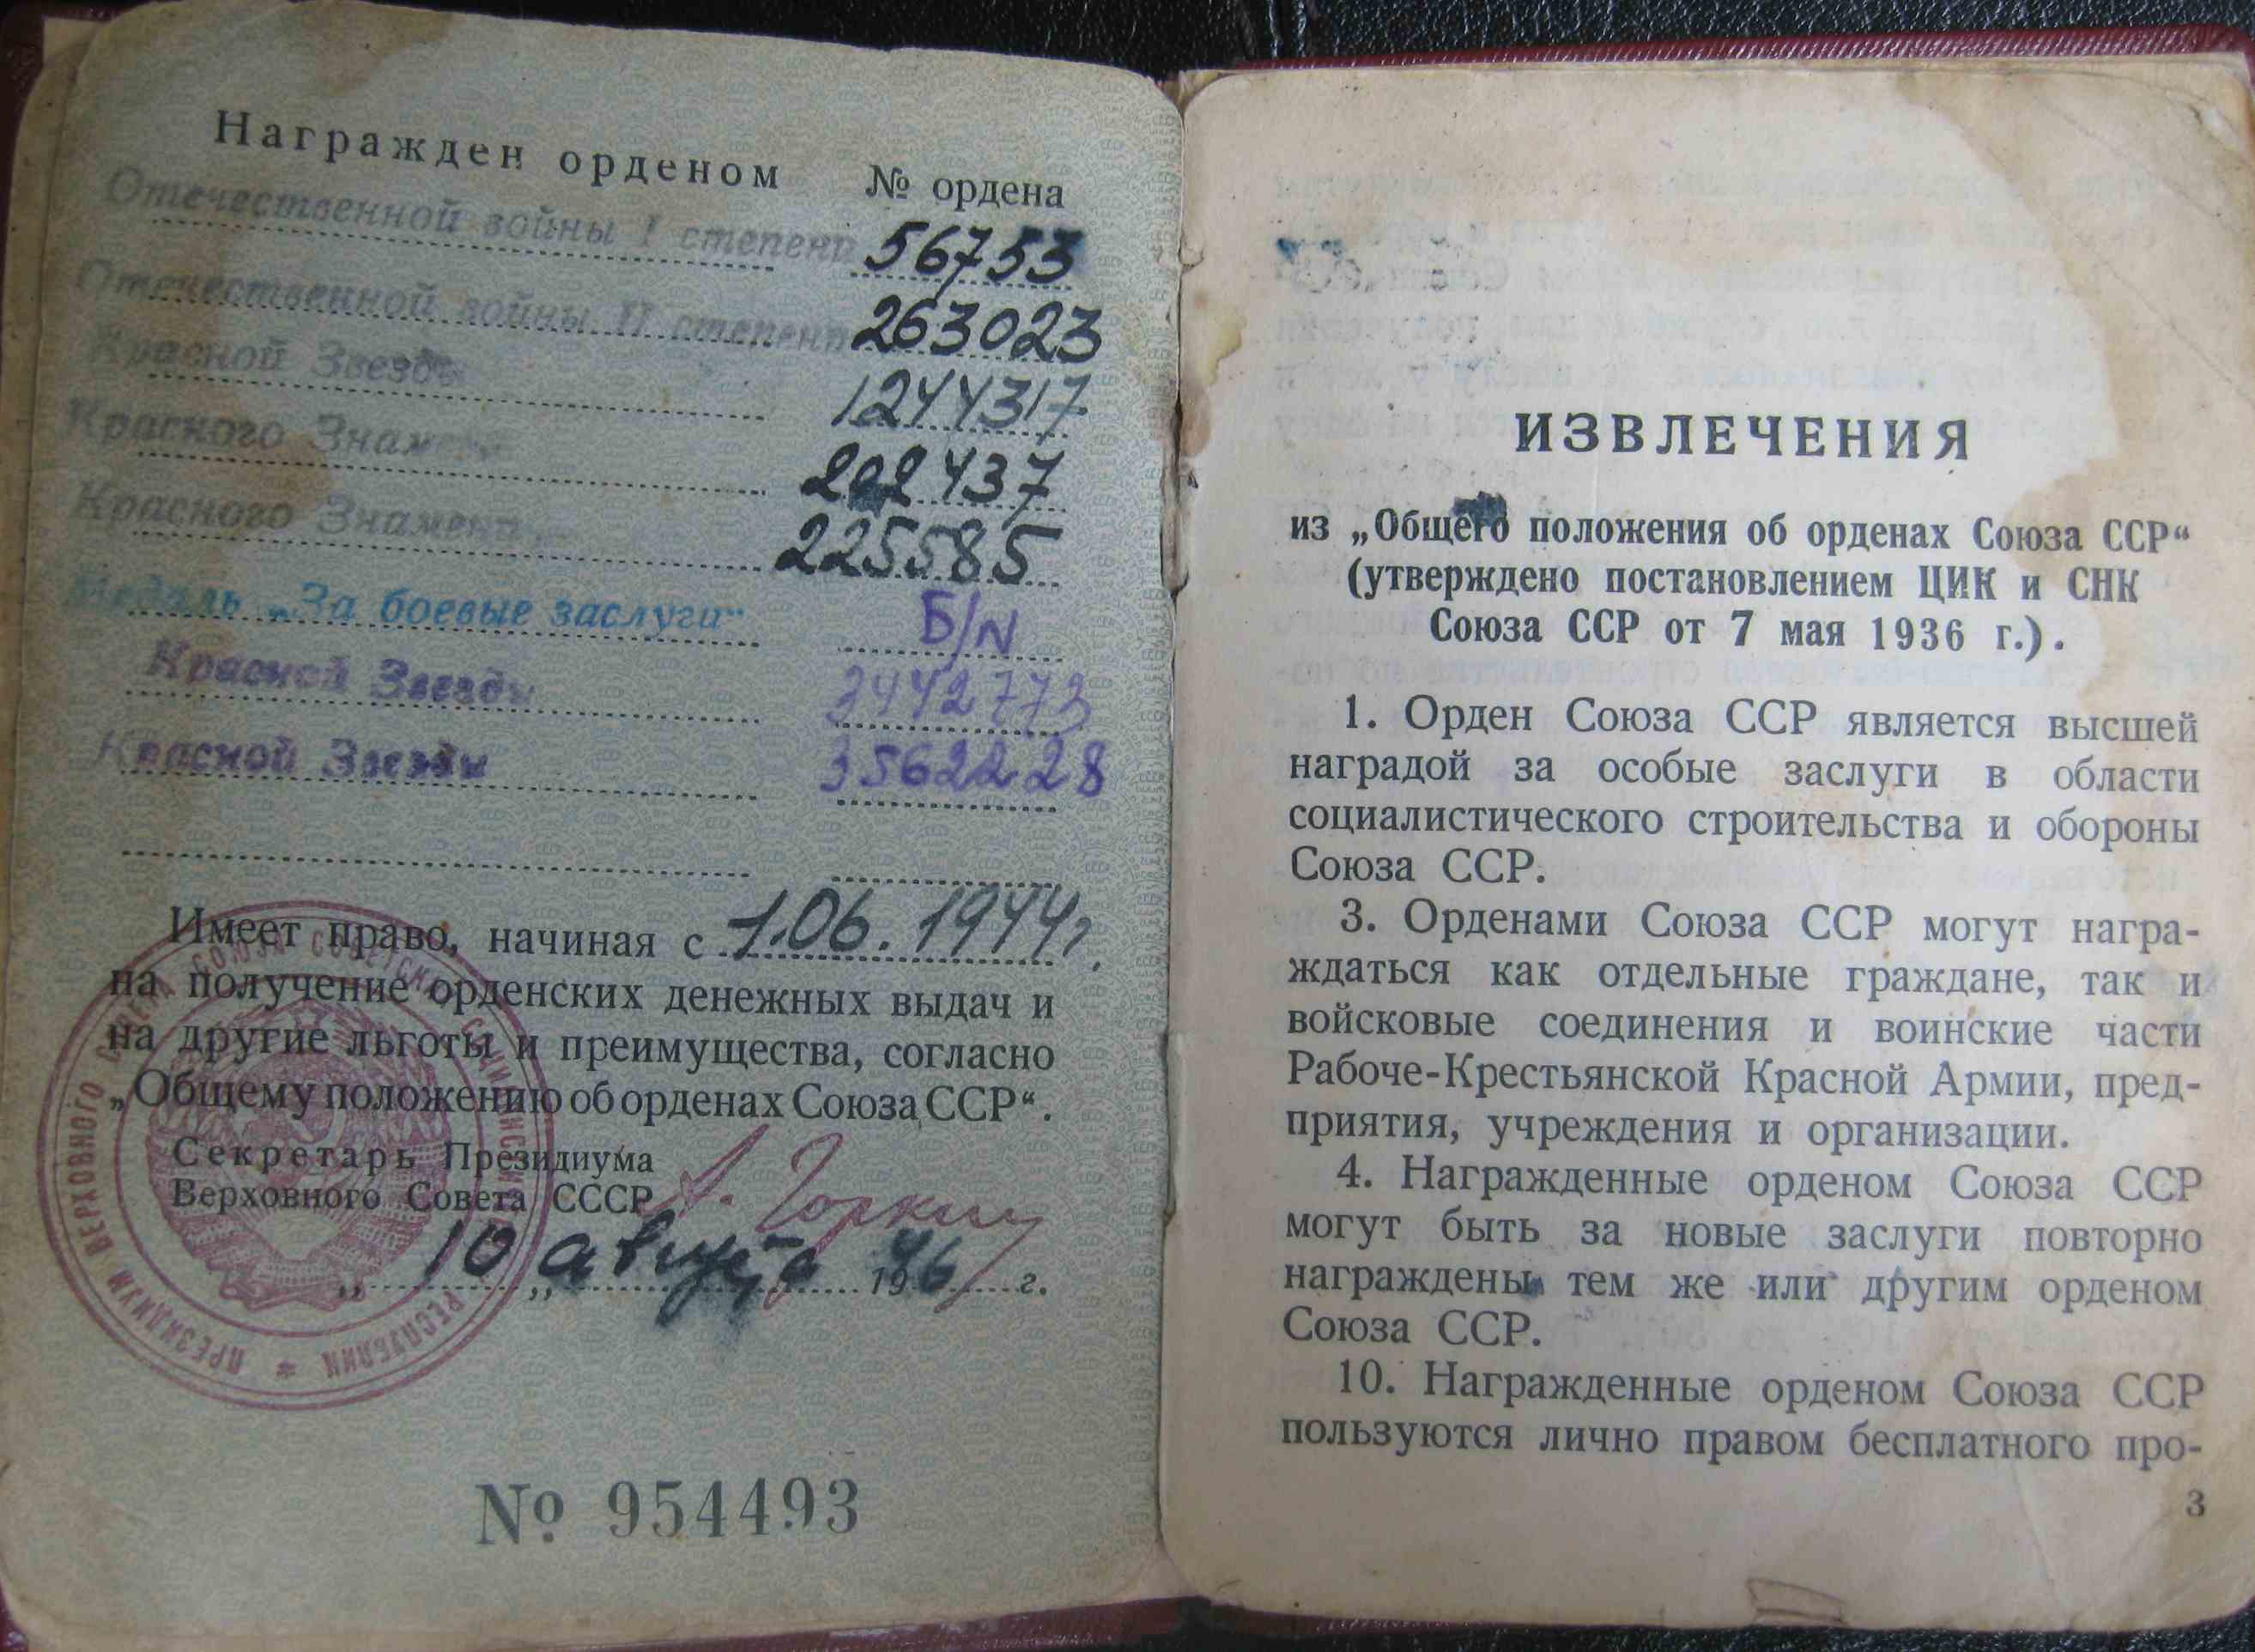 Награжден орденом № ордена
Отечественной войны I степени 56753
Отечественной войны II степени 263023
Красной Звезды 1244317
Красного Знамени 202437
Красного Знамени 225585
Медаль „За боевые заслуги“ Б/N
Красной Звезды 3442773
Красной Звезды 3562228
Имеет право, начиная с 1.06.1944г.
на получение орденских денежных выдач и
на другие льготы и преимущества, согласно
„Общему положению об орденах Союза ССР“.
Секретарь Президиума
Верховного Совета СССР А. Горкин
„10„ августа 1946 г.
ПРЕЗИДИУМ ВЕРХОВНОГО СОВЕТА СОЮЗА СОВЕТСКИХ СОЦИАЛИСТИЧЕСКИХ РЕСПУБЛИК
№ 954493
ИЗВЛЕЧЕНИЯ
из „Общего положения об орденах Союза ССР“
(утверждено постановлением ЦИК и СНК
Союза ССР от 7 мая 1936 г.).
1. Орден Союза ССР является высшей
наградой за особые заслуги в области
социалистического строительства и обороны
Союза ССР.
3. Орденами Союза ССР могут награ-
ждаться как отдельные граждане, так и
войсковые соединения и воинские части
Рабоче-Крестьянской Красной Армии, пред-
приятия, учреждения и организации.
4. Награжденные орденом Союза ССР
могут быть за новые заслуги повторно
награждены тем же или другим орденом
Союза ССР.
10. Награжденные орденом Союза ССР
пользуются лично правом бесплатного про-
3